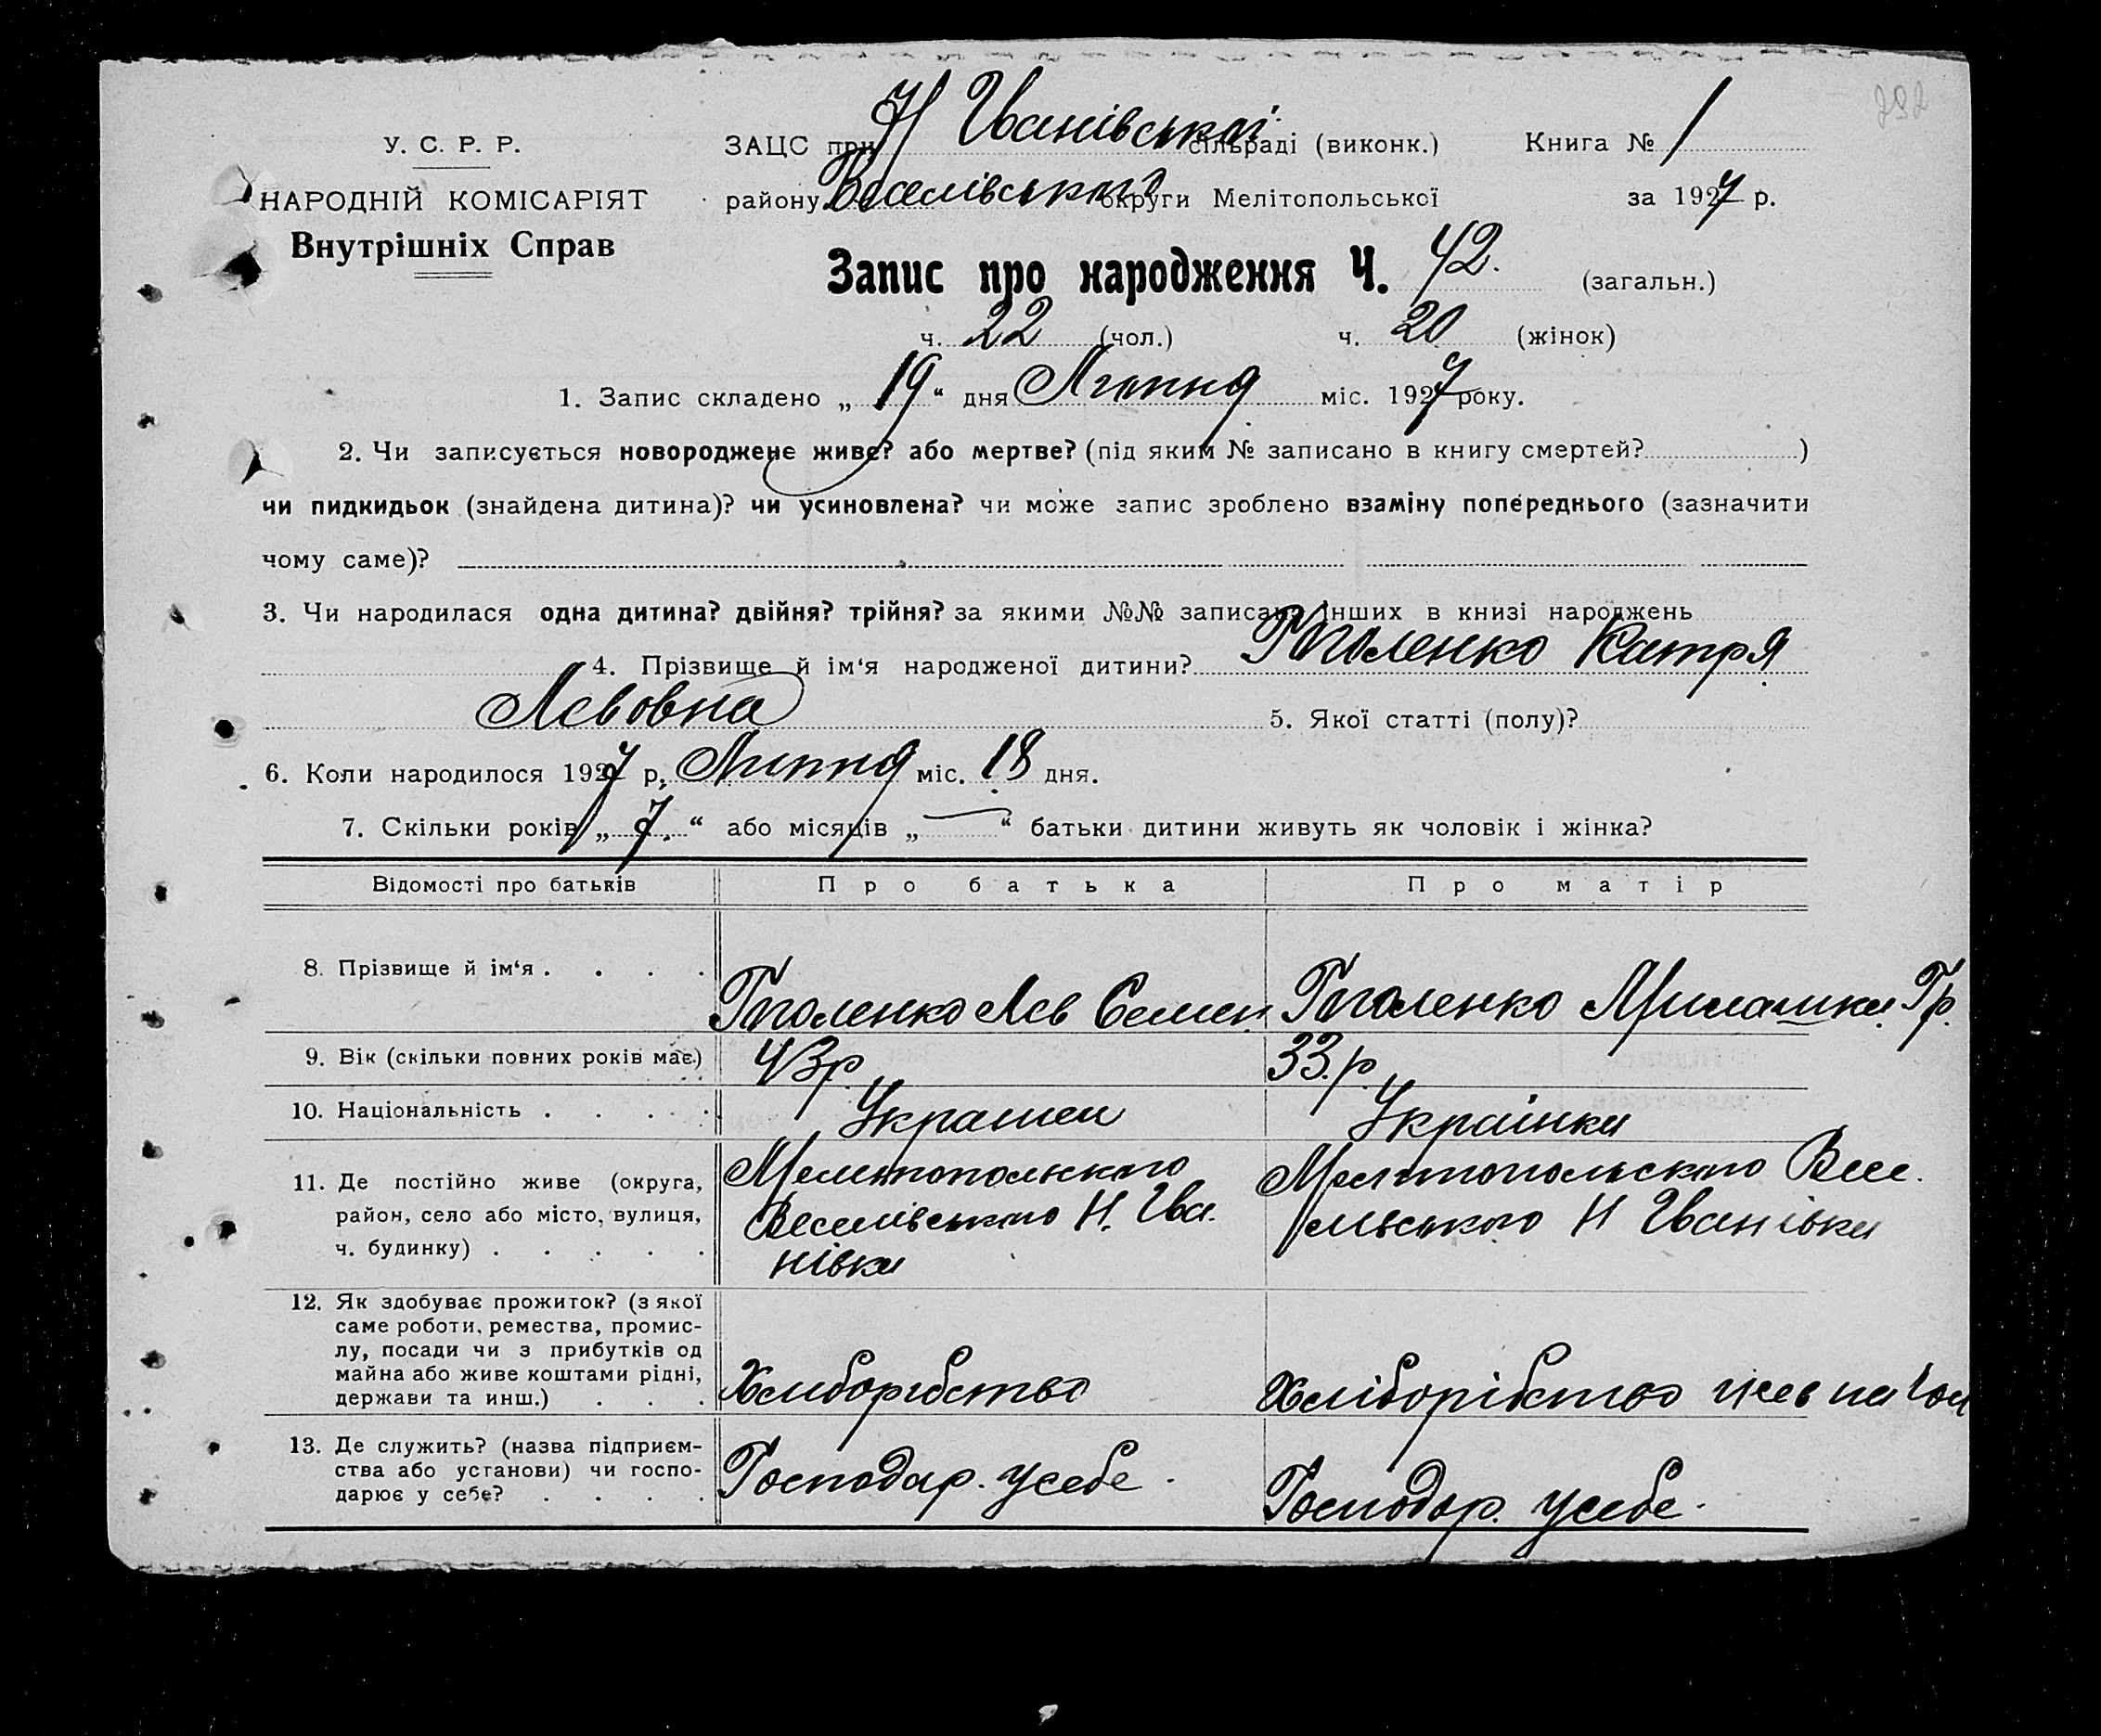 292
У. С. Р. Р.
НАРОДНІЙ КОМІСАРІЯТ
Внутрішніх Справ
ЗАЦС при Н Іванівській сільраді (виконк.) Книга № 1
району Веселівського округи Мелітопольської за 1927 р.
Запис про народження Ч. 42. (загальн.)
ч. 22 (чол.) ч. 20 (жінок)
1. Запис складено „ 19 “ дня Липня міс. 1927 року.
2. Чи записується новороджене живе? або мертве? (під яким № записано в книгу смертей? )
чи пидкидьок (знайдена дитина)? чи усиновлена? чи може запис зроблено взаміну попереднього (зазначити
чому саме)?
3. Чи народилася одна дитина? двійня? трійня? за якими №№ записано інших в книзі народжень
4. Прізвище й ім‘я народженої дитини? Гоголенко Катря
Левовна 5. Якої статті (полу)?
6. Коли народилося 1927 р. Липня міс. 18 дня.
7. Скільки років „ 7. “ або місяців „ — “ батьки дитини живуть як чоловік і жінка?
Відомості про батьків Про батька Про матір
8. Прізвище й ім‘я . . . . Гоголенко Лев Семен Гоголенко Гр.
9. Вік (скільки повних років має.) 43 р 33. р.
10. Національність . . . . . Українка
11. Де постійно живе (округа,
район, село або місто, вулиця,
ч. будинку) . . . . .
Мелитопольского
Веселівського Н. Іва.
нівка
Мелітопольского Весе.
лівського Н Іванівка
12. Як здобуває прожиток? (з якої
саме роботи, ремества, промис-
лу, посади чи з прибутків од
майна або живе коштами рідні,
держави та инш.) . . .
Хліборобство
Хліборібство
13. Де служить? (назва підприєм-
ства або установи) чи госпо-
дарює у себе? . . . .
Господар. усебе.
Господар. усебе.